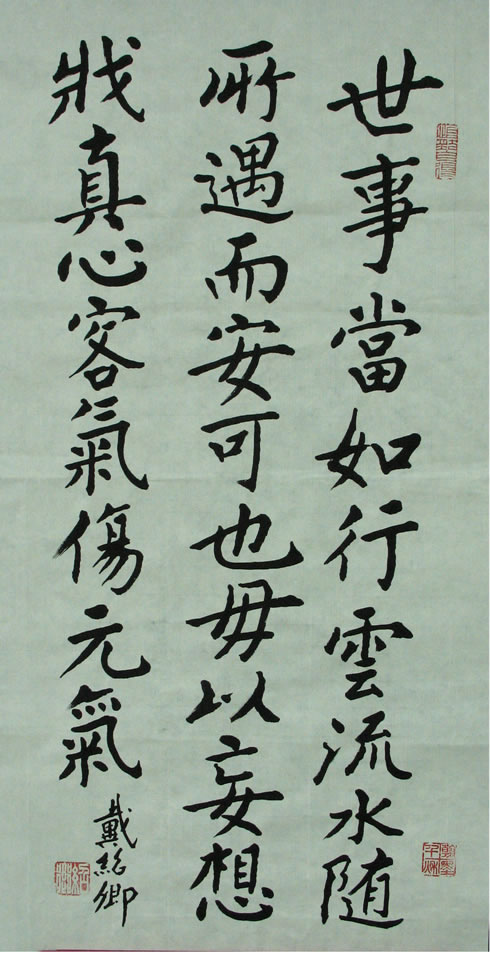 世事當如行雲流水随
所遇而安可也毋以妄想
戕真心客氣傷元氣
戴紹卿